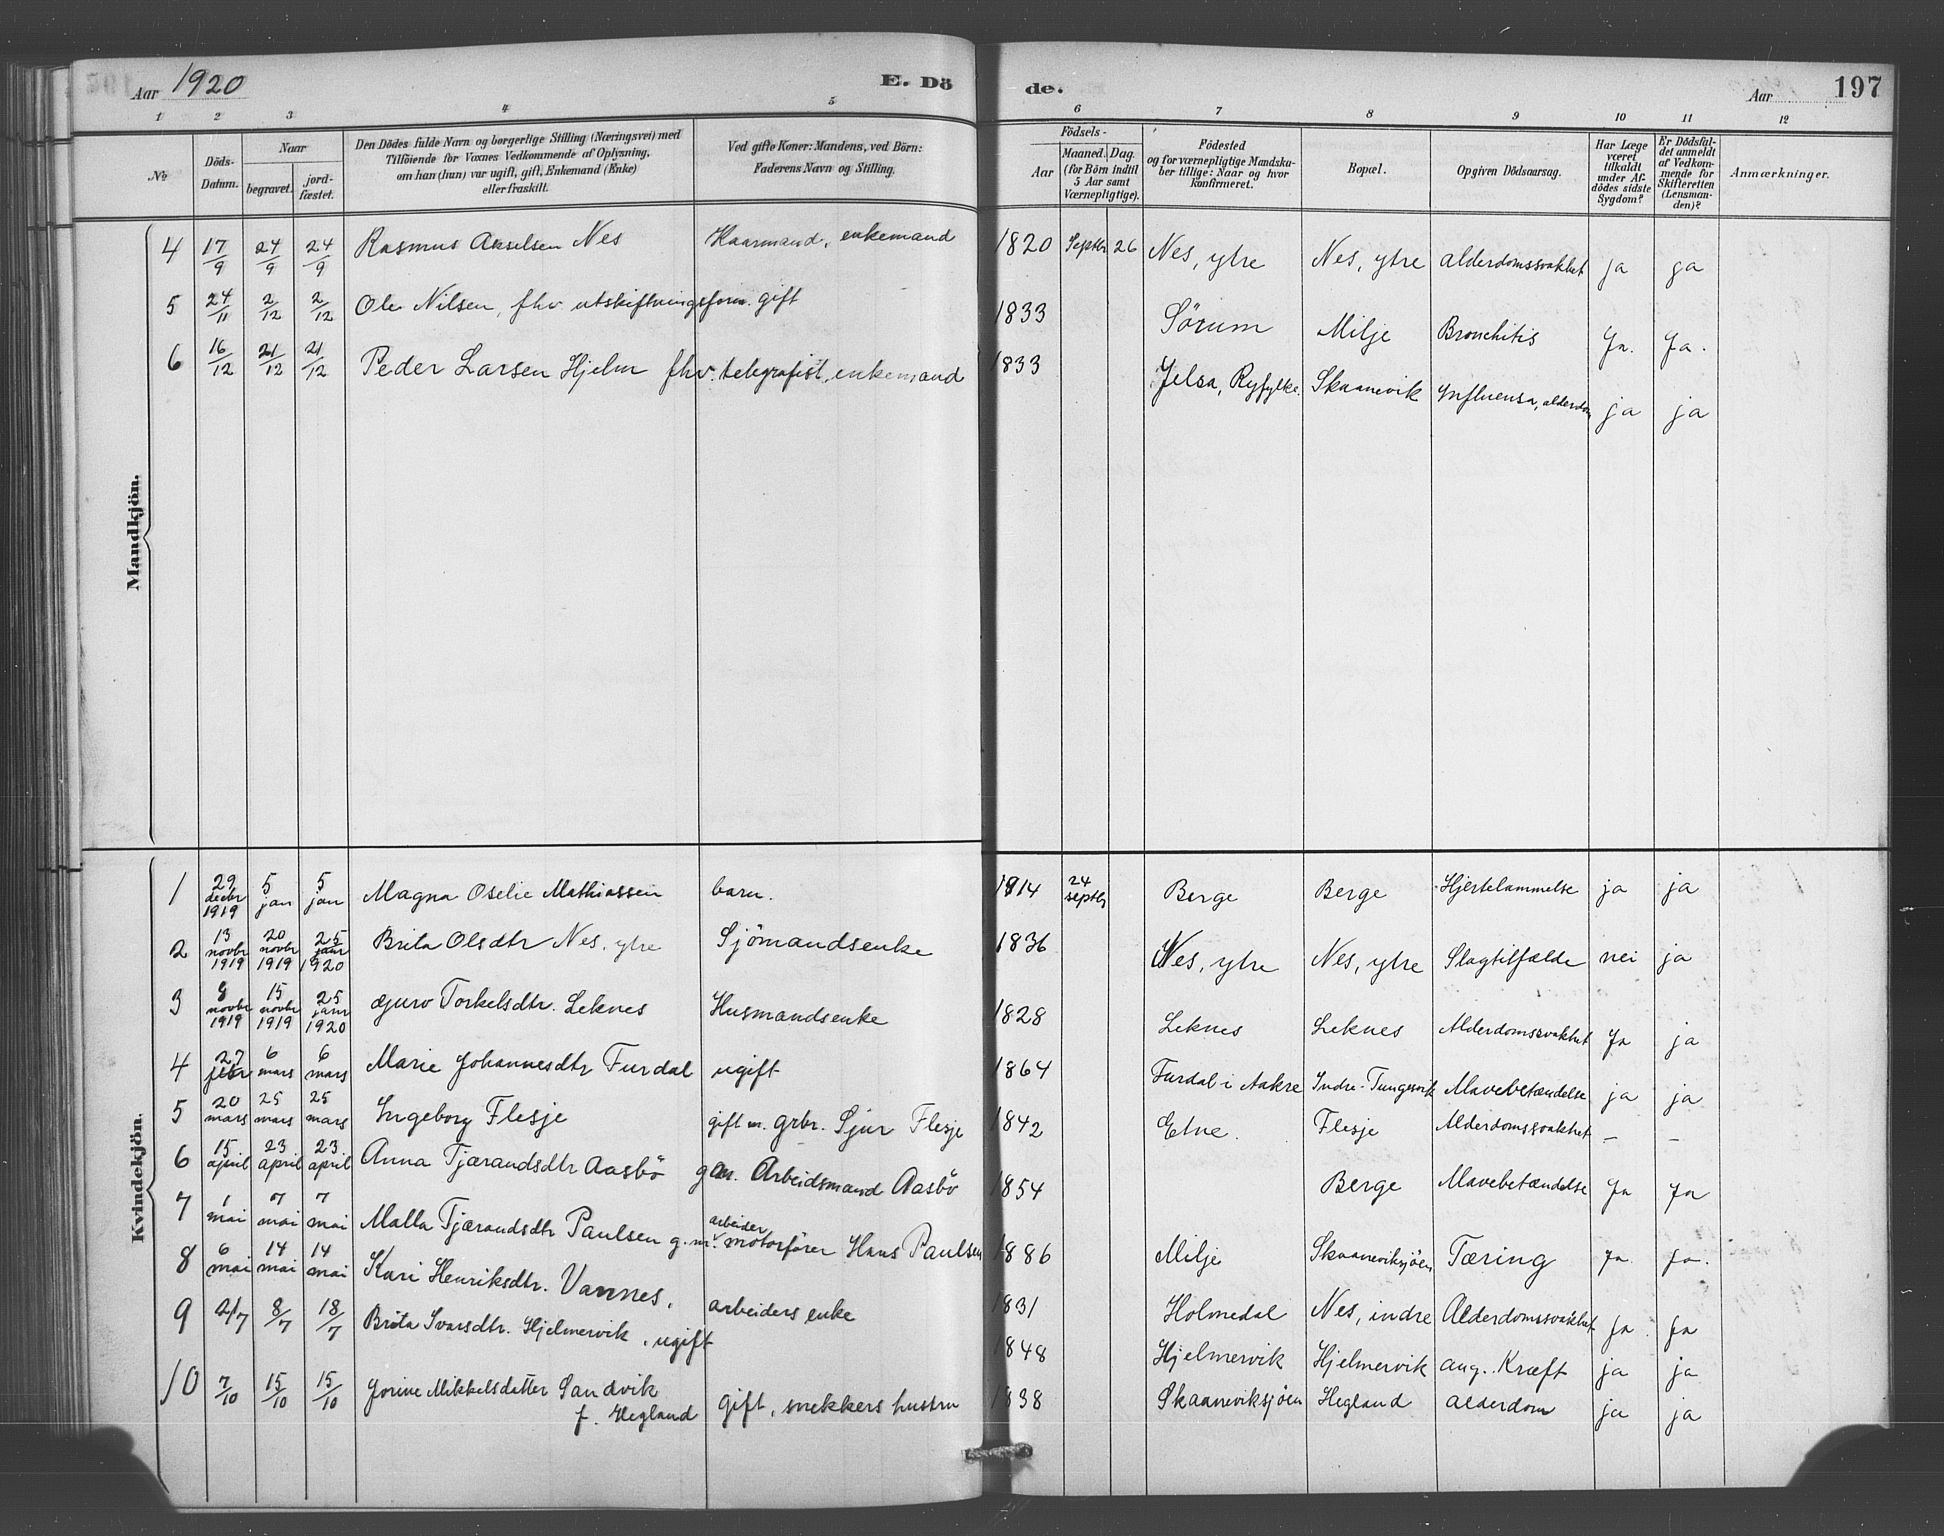 Aar 1920
E. Dö
de.
Aar
197
1 2 3 4 5 6 7 8 9 10 11 12
No
Döds-Datum.
Naar
begravet.
jord-fæstet.
Den Dödes fulde Navn og borgerlige Stilling (Næringsvei) med
Tilföiende for Voxnes Vedkommende af Oplysning,
om han (hun) var ugift, gift, Enkemand (Enke)
eller fraskilt.
Ved gifte Koner: Mandens, ved Börn:
Faderens Navn og Stilling.
Födsels-
Aar
Maaned. Dag.
(for Börn indtil
5 Aar samt
Værnepligtige).
Födested
og for værnepligtige Mandska-
ber tillige: Naar og hvor
konfirmeret.
Bopæl.
Opgiven Dödsaarsag.
Har Læge
været
tilkaldt
under Af-
dödes sidste
Sygdom?
Er Dödsfal-
det anmeldt
af Vedkom-
mende for
Skifteretten
(Lensman-
den)?
Anmærkninger.
Mandkjön.
4 17/9 24/9 24/9 Rasmus Akselsen Nes Kaarmand, enkemand 1820 Septbr 26 Nes, ytre Nes, ytre alderdomssvakhet ja ja
5 24/11 2/12 2/12 Ole Nilsen, fhv. utskiftningsform. gift 1833 Sörum Milje Bronchitis Ja. Ja.
6 16/12 21/12 21/12 Peder Larsen Hjelm fhv. telegrafist, enkemand 1833 Jelsa, Ryfylke. Skaanevik Influensa, alderdom ja ja
Kvindekjön.
1 29 decbr 1919 5 jan 5 jan Magna Oselie Mathiassen barn. 1914 24 septbr Berge Berge Hjertelammelse ja ja
2 13 novbr 1919 20 novbr 1919 25 janr 1920 Brita Olsdtr Nes, ytre Sjömandsenke 1836 Nes, ytre Nes, ytre Slagtilfælde nei ja
3 8 novbr 1919 15 novbr 1919 25 janr 1920 Gjuro Torkelsdtr. Leknes Husmandsenke 1828 Leknes Leknes Alderdomssvakhet Ja ja
4 27 febr 6 mars 6 mars Marie Johannesdtr Furdal ugift 1864 Furdal i Aakre Indre-Tungesvik Mavebetændelse ja ja
5 20 mars 25 mars 25 mars Ingeborg Flesje gift m. grbr. Sjur Flesje 1842 Etne. Flesje Alderdomssvakhet — —
6 15 april 23 april 23 april Anna Tjærandsdtr Aasbö g m. Arbeidsmand Aasbö 1854 Berge Mavebetændelse Ja Ja
7 1 mai 7 mai 7 mai Malla Tjærandsdtr Paulsen g. m. arbeider motorförer Hans Paulsen 1886 Milje Skaaneviksjöen Tæring Ja. Ja.
8 6 mai 14 mai 14 mai Kari Henriksdtr. Vannes. arbeiders enke 1831 Holmedal Nes, indre Alderdomssvakhet Ja Ja
9 2/7 8/7 18/7 Brita Ivarsdtr. Hjelmervik, ugift 1848 Hjelmervik Hjelmervik ang. Kræft ja ja
10 7/10 15/10 15/10 Jorine Mikkelsdatter Sandvik
f. Hegland gift, snekkers hustru 1838 Skaaneviksjöen Hegland alderdom ja ja